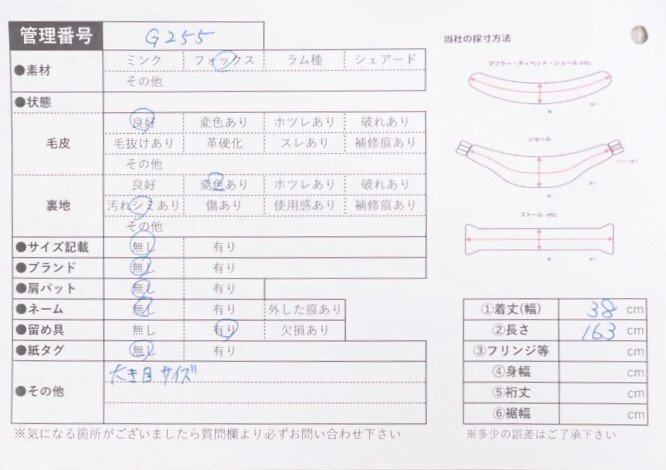 管理番号 G255
当社の採寸方法
●素材 ミンク フォックス ラム種 シェアード
その他
マフラー・ティペット・ショール etc
●状態
毛皮 良好 変色あり ホツレあり 破れあり
毛抜けあり 革硬化 スレあり 補修痕あり
その他
ショール
裏地 良好 変色あり ホツレあり 破れあり
汚れシミあり 傷あり 使用感あり 補修痕あり
その他
ストール etc
●サイズ記載 無し 有り
●ブランド 無し 有り
●肩パット 無し 有り
●ネーム 無し 有り 外した痕あり
●留め具 無し 有り 欠損あり
●紙タグ 無し 有り
●その他 大き目サイズ
※気になる箇所がございましたら質問欄より必ずお問い合わせ下さい
①着丈(幅) 38 cm
②長さ 163 cm
③フリンジ等 cm
④身幅 cm
⑤裄丈 cm
⑥裾幅 cm
※多少の誤差はご了承下さい